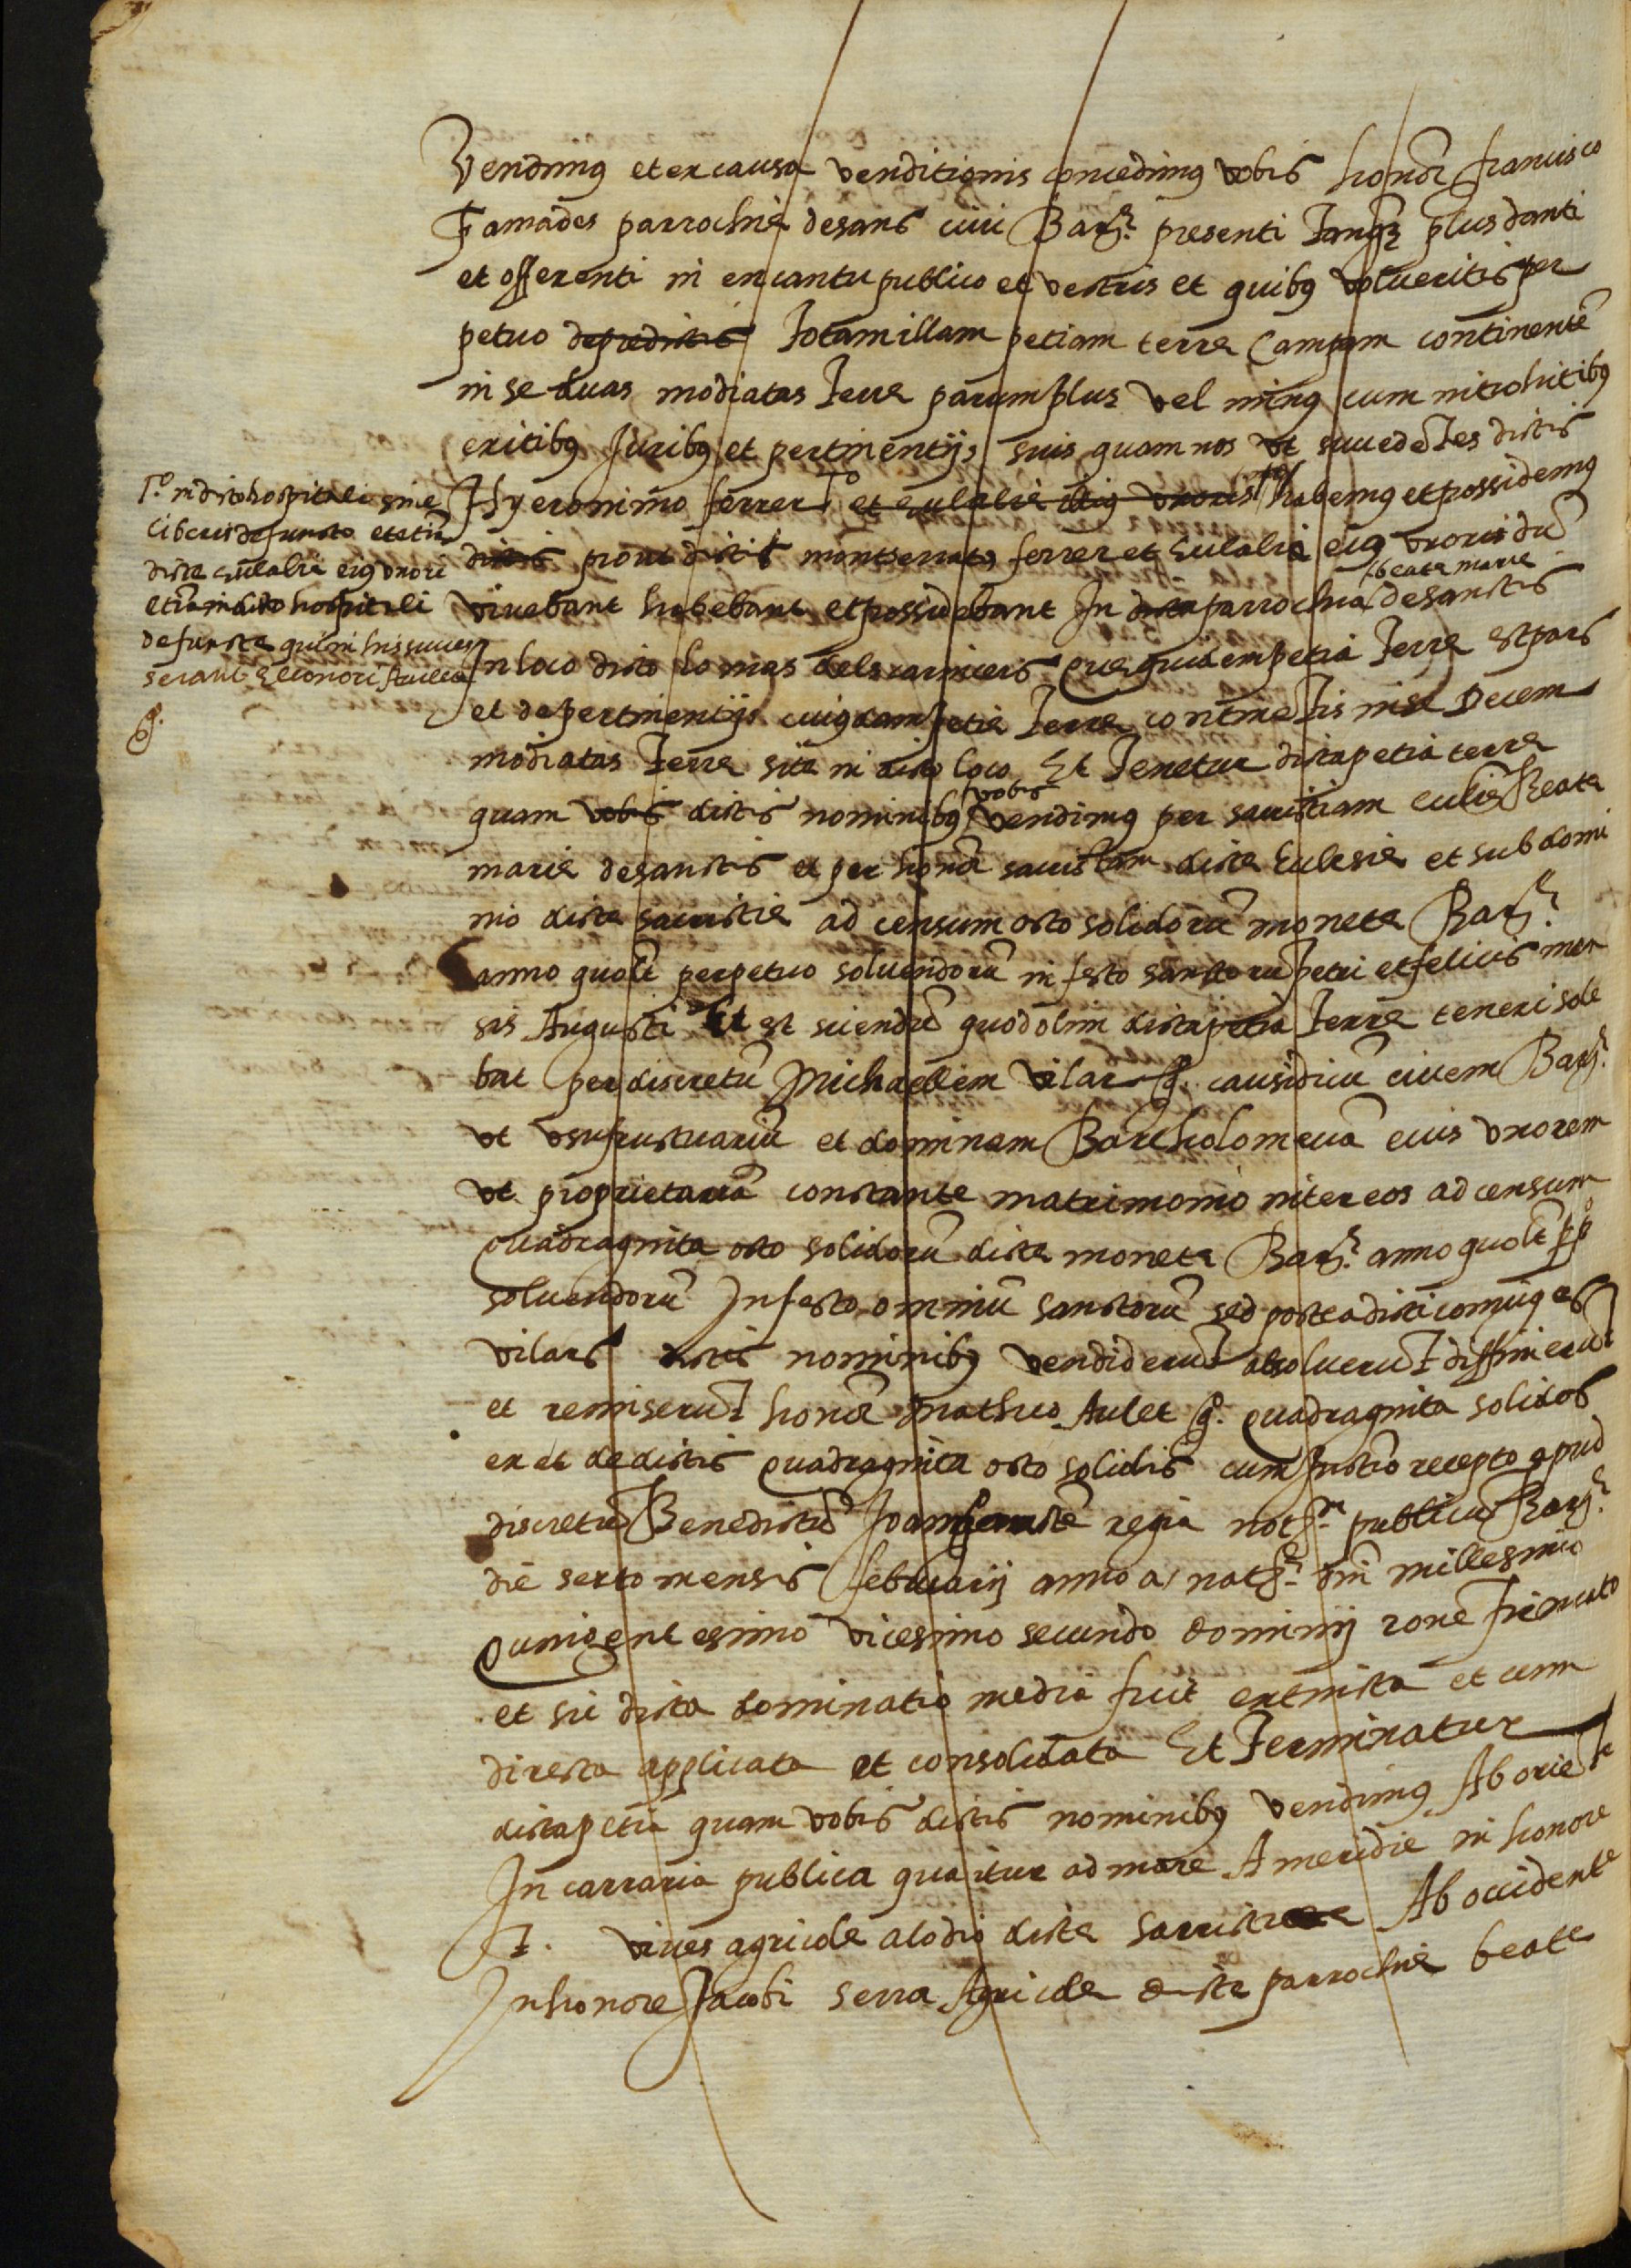 Vendimus et ex causa venditionis concedimus vobis honorabili francisco
Famades parrochie de sans civi Barne. presenti Tanquam plus danti
et offerenti in encantu publico et vestris et quibus volueritis per
petuo de predictis Totam illam petiam terre Campam continentem
in se duas modiatas Terre parum plus vel minus cum introhitibus
exitibus Juribus et pertinentijs suis quam nos ut succedentes dictis
Hyeronimo ferrer et eulalie eius uxoris habemus et possidemus
dictis prout dictis montserratus ferrer et Eulalia eius uxoris dum
beate marie
vivebant habebant et possidebant In dicta parrochia de sanctis
In loco dicto lo mas dels carnicers Que quidem petia Terre est pars
et de pertinentijs cuiusdam petie Terre continentis in se Decem
modiatas Terre site in dicto loco Et Tenetur dicta petia terre
vobis
quam vobis dictis nominibus vendimus per sacristiam ecclesie Beate
marie de sanctis et per honor. sacristam dicte Ecclesie et sub domi
nio dicte sacristie ad censum octo solidorum monete Barne.
anno quolibet perpetuo solvendorum in festo sanctorum petri et felicis men
sis Augusti Et est sciendum quod olim dicta petia Terre teneri sole
bat per discretum Michaellem vilar q. causidicum civem Barne.
ut usufructuarium et dominam Bartholomeua eius uxorem
ut proprietariam constante matrimonio inter eos ad censum
Quadraginta octo solidorum dicte monete Barne. anno quolibet pp.
solvendorum In festo omnium sanctorum sed postea dicti coniuges
vilars dictis nominibus vendiderunt absolverunt diffinierunt
et remiserunt honor. matheo Aulet q. Quadraginta solidos
ex et de dictis Quadraginta octo solidis cum Instro recepto apud
discretum Benedictum Joan regia not. publicum Barne.
die sexto mensis februarij anno a nat. dni millesimo
Quingentesimo vicesimo secundo dominij rone firmato
et sic dicta dominatio media fuit extincta et cum
directa applicata et consolidata Et Terminatur
dicta petia quam vobis dictis nominibus vendimus Ab oriente
In carraria publica qua itur ad mare A meridie in honore
T. vives agricole alodio dicte sacristie Ab occidente
In honore Jacobi serra Agricole dicte parrochie beate
To. in dicto hospitali sine
liberis defuncto et etiam
dicte eulalie eius uxori
etiam in dicto hospitali
defuncte qui in his succes
serant Elionori
q.